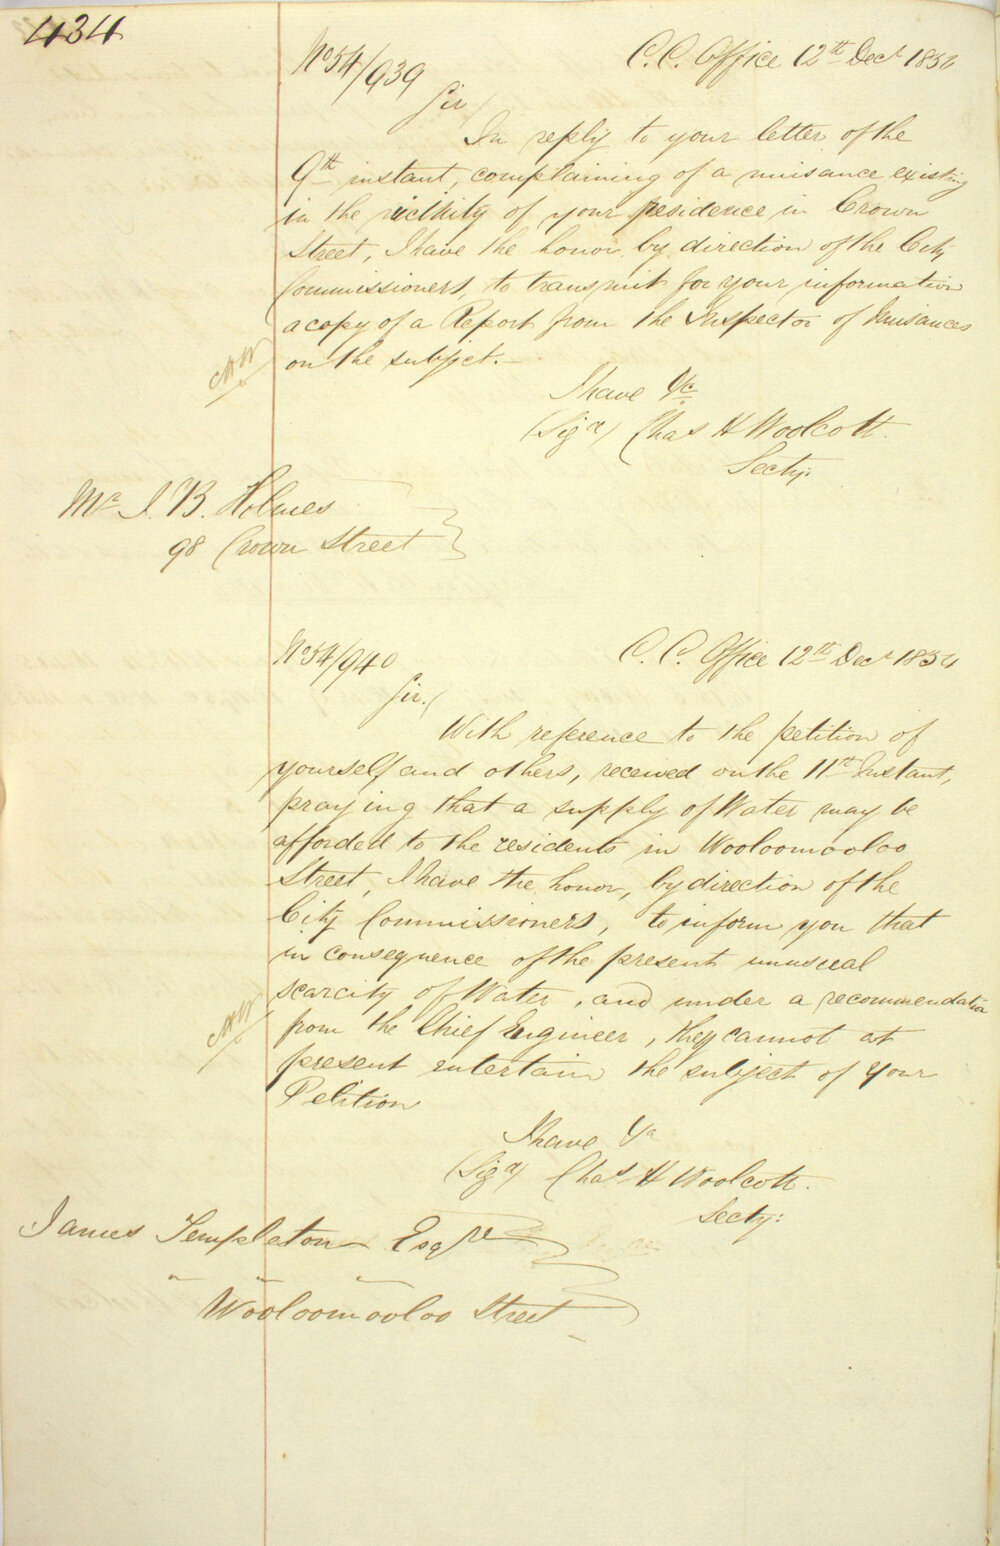 434
No 54/939
C. C. Office 12th Decr 1854
Sir/
In reply to your letter of the
9th instant, complaining of a nuisance existing
in the vicinity of your residence in Crown
Street, I have the honor by direction of the City
Commissioners, to transmit for your information
a copy of a Report from the Inspector of Nuisances
on the subject.—
CHW
I have &c
(Sigd) Chas H Woolcott.
Secty:
Mr J. B. Holmes
98 Crown Street
No 54/940
C. C. Office 12th Decr 1854
Sir.(
With reference to the petition of
yourself and others, received on the 11th Instant,
praying that a supply of Water may be
afforded to the residents in Wooloomooloo
Street, I have the honor, by direction of the
City Commissioners, to inform you that
in consequence of the present unusual
scarcity of Water, and under a recommendation
from the Chief Engineer, they cannot at
present entertain the subject of your
Petition
CHW
I have &c
(Sigd) Chas H Woolcott.
Secty:
James Templeton Esqre
Wooloomooloo Street